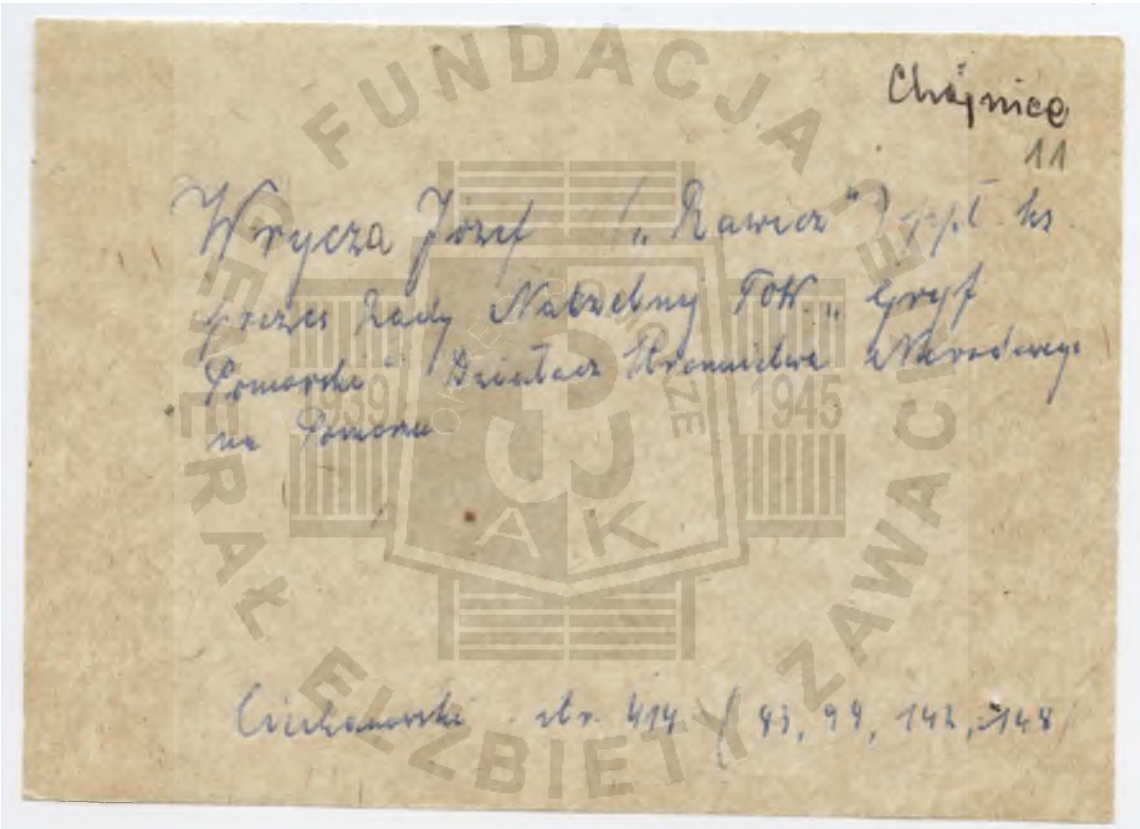 Chojnice
11
Wrycza Józef /„Rawicz”/ ppł. ks
prezes Rady Naczelnej TOW. „Gryf
Pomorski” Działacz Stronnictwa Narodowego
na Pomorzu
Ciechanowski str. 414 / 93, 99, 142, 148/
FUNDACJA
GENERAŁ ELŻBIETY ZAWACKIEJ
1939 1945
AK